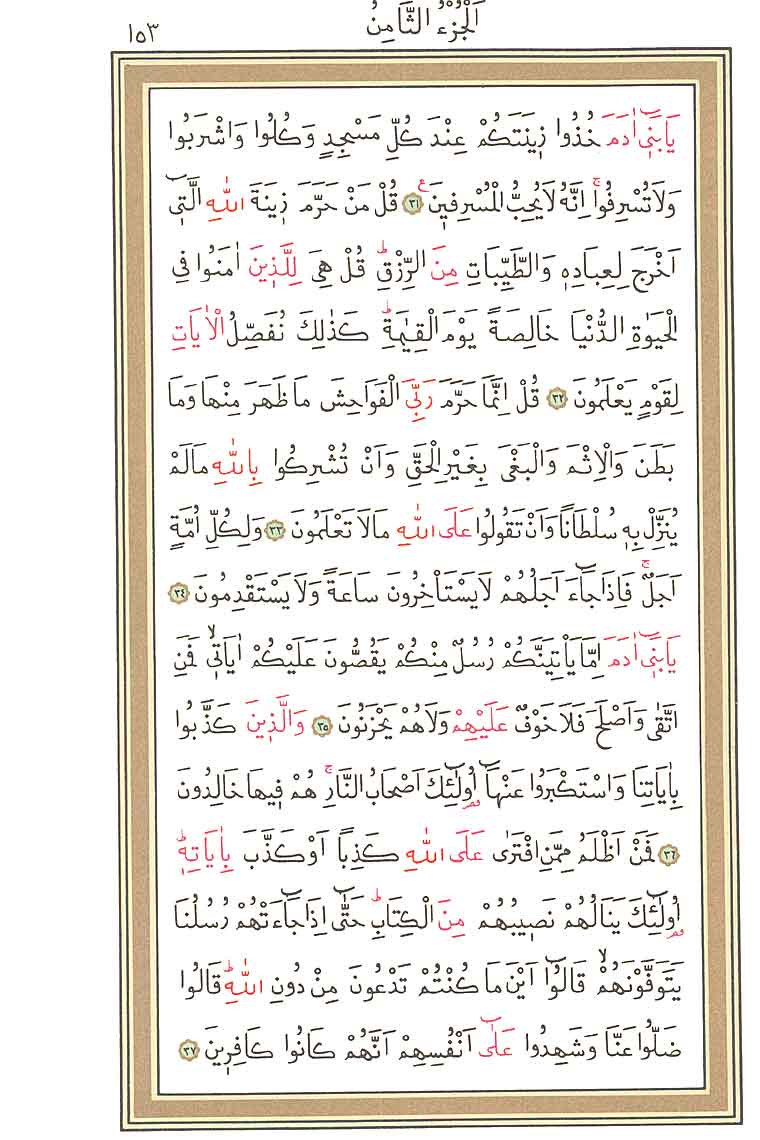 اَلْجُزْءُ الثَّامِنُ ١٥٣
يَابَنٖٓي اٰدَمَ خُذُوا زٖينَتَكُمْ عِنْدَ كُلِّ مَسْجِدٍ وَكُلُوا وَاشْرَبُوا
وَلَا تُسْرِفُواۚ اِنَّهُ لَا يُحِبُّ الْمُسْرِفٖينَࣖ ٣١ قُلْ مَنْ حَرَّمَ زٖينَةَ اللّٰهِ الَّتٖٓي
اَخْرَجَ لِعِبَادِهٖ وَالطَّيِّبَاتِ مِنَ الرِّزْقِؕ قُلْ هِيَ لِلَّذٖينَ اٰمَنُوا فِي
الْحَيٰوةِ الدُّنْيَا خَالِصَةً يَوْمَ الْقِيٰمَةِؕ كَذٰلِكَ نُفَصِّلُ الْاٰيَاتِ
لِقَوْمٍ يَعْلَمُونَ ٣٢ قُلْ اِنَّمَا حَرَّمَ رَبِّيَ الْفَوَاحِشَ مَا ظَهَرَ مِنْهَا وَمَا
بَطَنَ وَالْاِثْمَ وَالْبَغْيَ بِغَيْرِ الْحَقِّ وَاَنْ تُشْرِكُوا بِاللّٰهِ مَا لَمْ
يُنَزِّلْ بِهٖ سُلْطَانًا وَاَنْ تَقُولُوا عَلَى اللّٰهِ مَا لَا تَعْلَمُونَ ٣٣ وَلِكُلِّ اُمَّةٍ
اَجَلٌۚ فَاِذَا جَٓاءَ اَجَلُهُمْ لَا يَسْتَأْخِرُونَ سَاعَةً وَلَا يَسْتَقْدِمُونَ ٣٤
يَابَنٖٓي اٰدَمَ اِمَّا يَأْتِيَنَّكُمْ رُسُلٌ مِنْكُمْ يَقُصُّونَ عَلَيْكُمْ اٰيَاتٖيۙ فَمَنِ
اتَّقٰى وَاَصْلَحَ فَلَا خَوْفٌ عَلَيْهِمْ وَلَا هُمْ يَحْزَنُونَ ٣٥ وَالَّذٖينَ كَذَّبُوا
بِاٰيَاتِنَا وَاسْتَكْبَرُوا عَنْهَٓا اُو۬لٰٓئِكَ اَصْحَابُ النَّارِۚ هُمْ فٖيهَا خَالِدُونَ
٣٦ فَمَنْ اَظْلَمُ مِمَّنِ افْتَرٰى عَلَى اللّٰهِ كَذِبًا اَوْ كَذَّبَ بِاٰيَاتِهٖؕ
اُو۬لٰٓئِكَ يَنَالُهُمْ نَصٖيبُهُمْ مِنَ الْكِتَابِؕ حَتّٰٓى اِذَا جَٓاءَتْهُمْ رُسُلُنَا
يَتَوَفَّوْنَهُمْۙ قَالُٓوا اَيْنَ مَا كُنْتُمْ تَدْعُونَ مِنْ دُونِ اللّٰهِؕ قَالُوا
ضَلُّوا عَنَّا وَشَهِدُوا عَلٰٓى اَنْفُسِهِمْ اَنَّهُمْ كَانُوا كَافِرٖينَ ٣٧